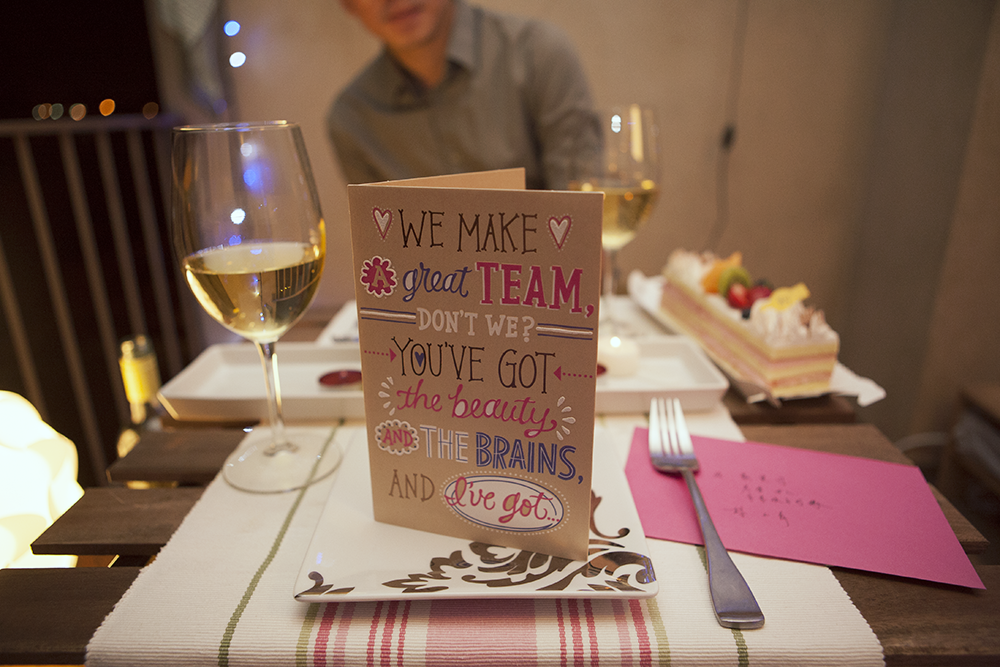 WE MAKE
A great TEAM,
DON'T WE?
YOU'VE GOT
the beauty
AND THE BRAINS,
AND I've got...